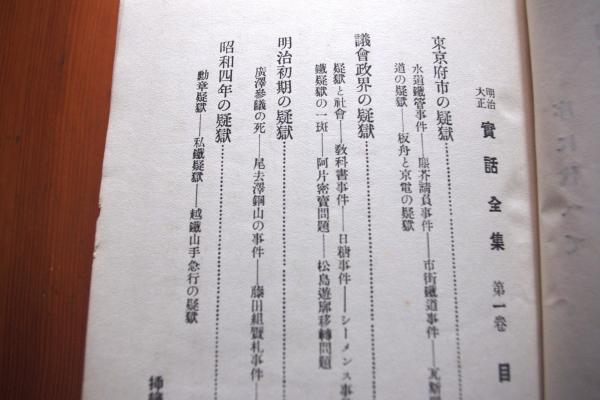 明治大正 實話全集 第一卷 目
東京府市の疑獄
水道鐵管事件――塵芥請負事件――市街鐵道事件――瓦斯
道の疑獄――板舟と京電の疑獄
議會政界の疑獄
疑獄と社會――敎科書事件――日糖事件――シーメンス事
鐵疑獄の一斑――阿片密賣問題――松島遊廓移轉問題
明治初期の疑獄
廣澤參議の死――尾去澤銅山の事件――藤田組贋札事件――
昭和四年の疑獄
勳章疑獄――私鐵疑獄――越鐵山手急行の疑獄